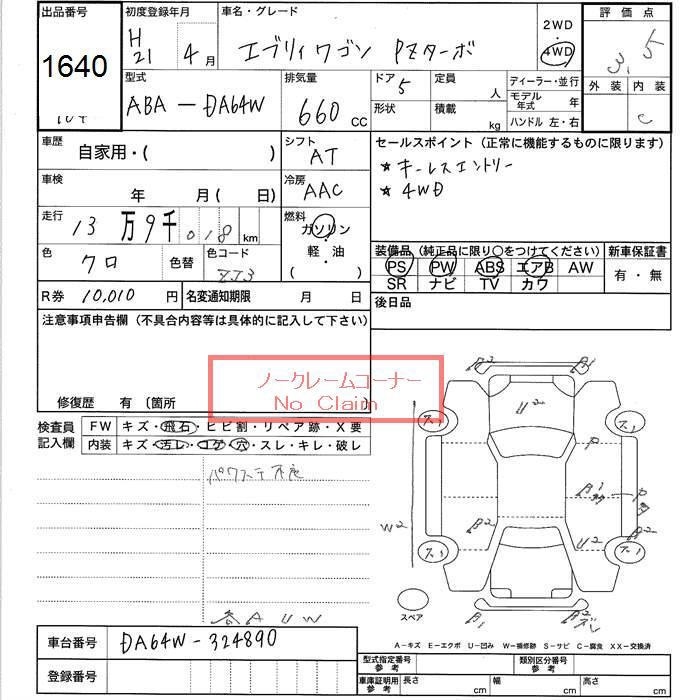 出品番号 初度登録年月 車名・グレード 2WD・4WD 評価点
1640 H21年4月 エブリィワゴン PZターボ 3.5
型式 排気量 ドア 定員 ディーラー・並行 外装 内装
ABA-DA64W 660cc 5 人 モデル年式 年 C
形状 積載 kg ハンドル 左・右
車歴 シフト セールスポイント (正常に機能するものに限ります)
自家用・( ) AT ★キーレスエントリー
車検 冷房 ★4WD
年 月(日) AAC
走行 燃料
13万9千018km ガソリン
色 色替 色コード 軽・油 装備品 (純正品に限り○をつけてください) 新車保証書
クロ ZJ3 ( ) PS PW ABS エアB AW 有・無
SR ナビ TV カワ
R券 10,010円 名変通知期限 月 日 後日品
注意事項申告欄 (不具合内容等は具体的に記入して下さい)
ノークレームコーナー
No Claim
修復歴 有 〔箇所
検査員記入欄 FW キズ・飛石・ヒビ割・リペア跡・X要
内装 キズ・汚レ・コゲ・穴・スレ・キレ・破レ
パワステ不良
各AUW
B2
U2
P
W2
B2
U2
B2
B1
スペア
A-キズ E-エクボ U-凹み W-補修跡 S-サビ C-腐食 XX-交換済
車台番号 DA64W-324890
登録番号
型式指定番号 参考 類別区分番号 参考
車庫証明用 参考 長さ cm 幅 cm 高さ cm